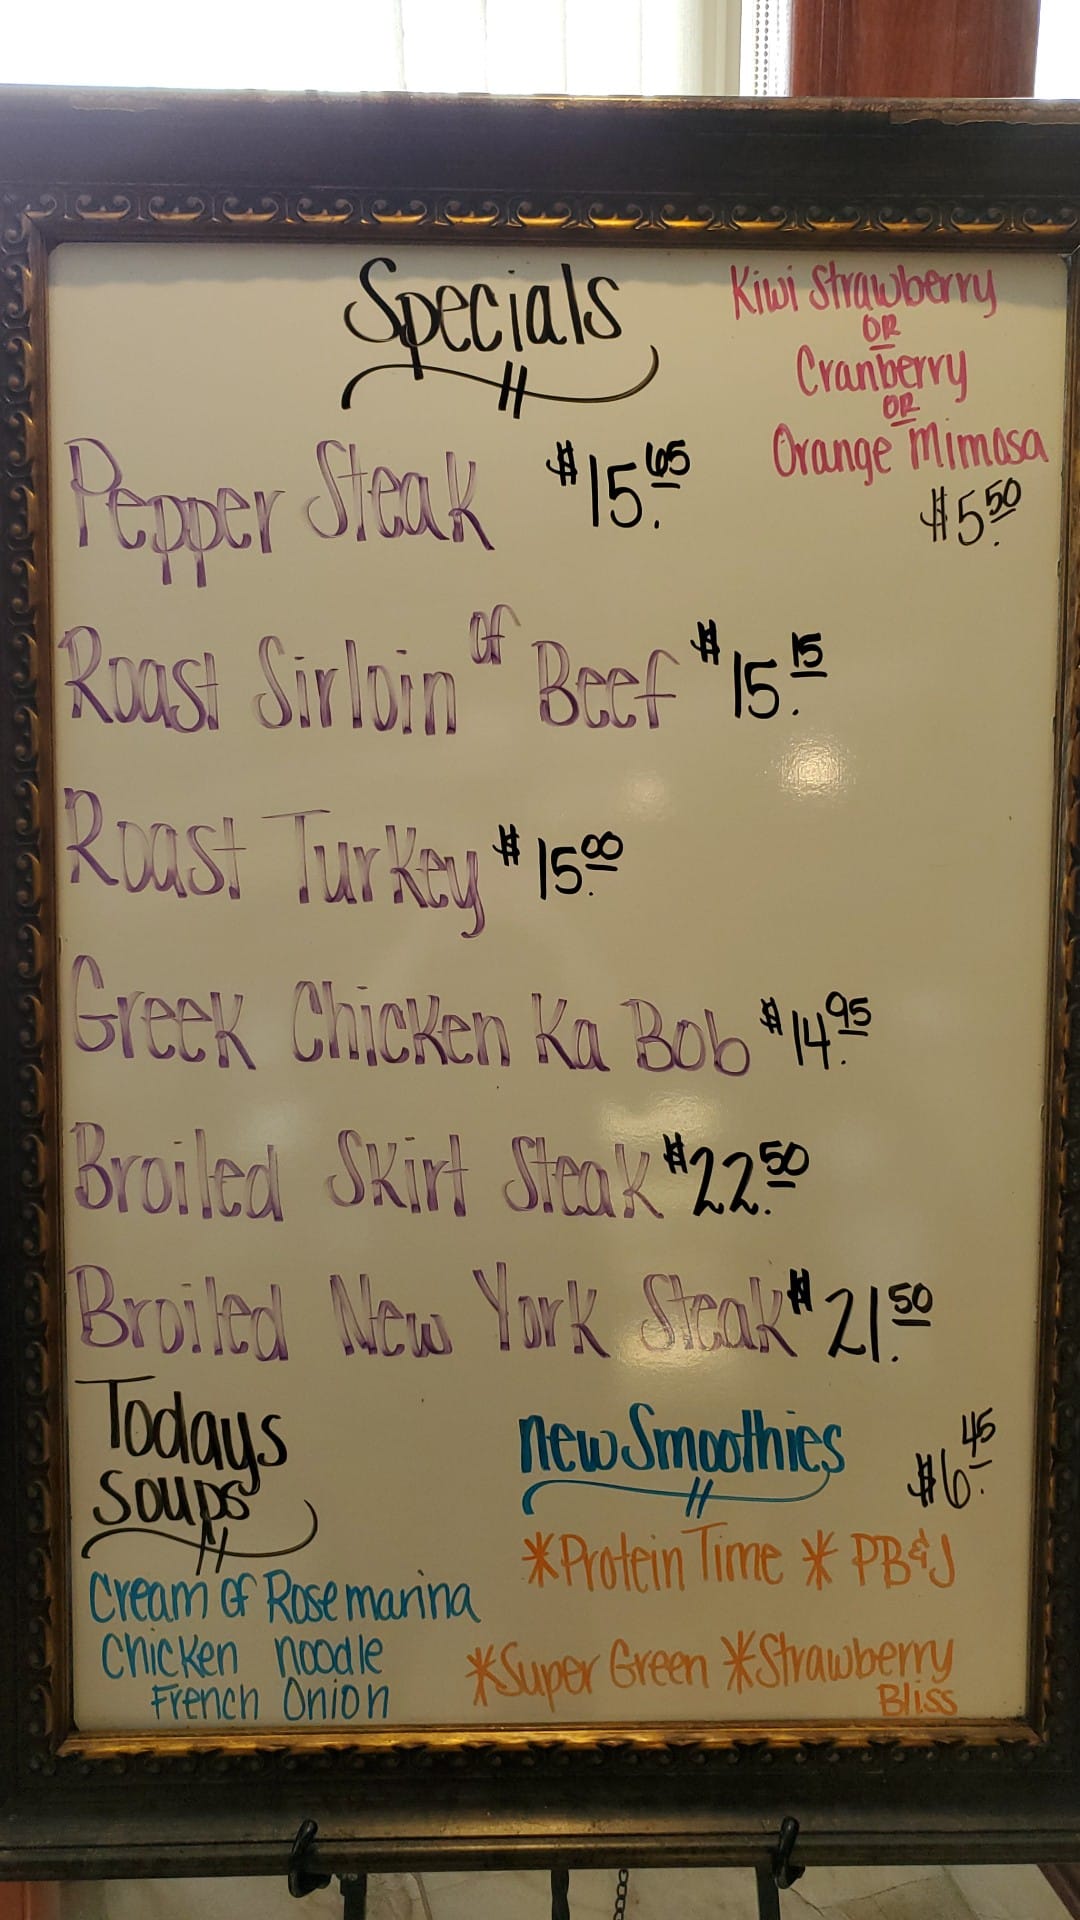 Specials
Kiwi Strawberry
OR
Cranberry
OR
Orange Mimosa
$5.50
Pepper Steak $15.65
Roast Sirloin of Beef $15.15
Roast Turkey $15.00
Greek Chicken Ka Bob $14.95
Broiled Skirt Steak $22.50
Broiled New York Steak $21.50
Todays
Soups
Cream of Rosemarina
Chicken noodle
French Onion
new Smoothies $6.45
*Protein Time * PB&J
*Super Green *Strawberry
Bliss